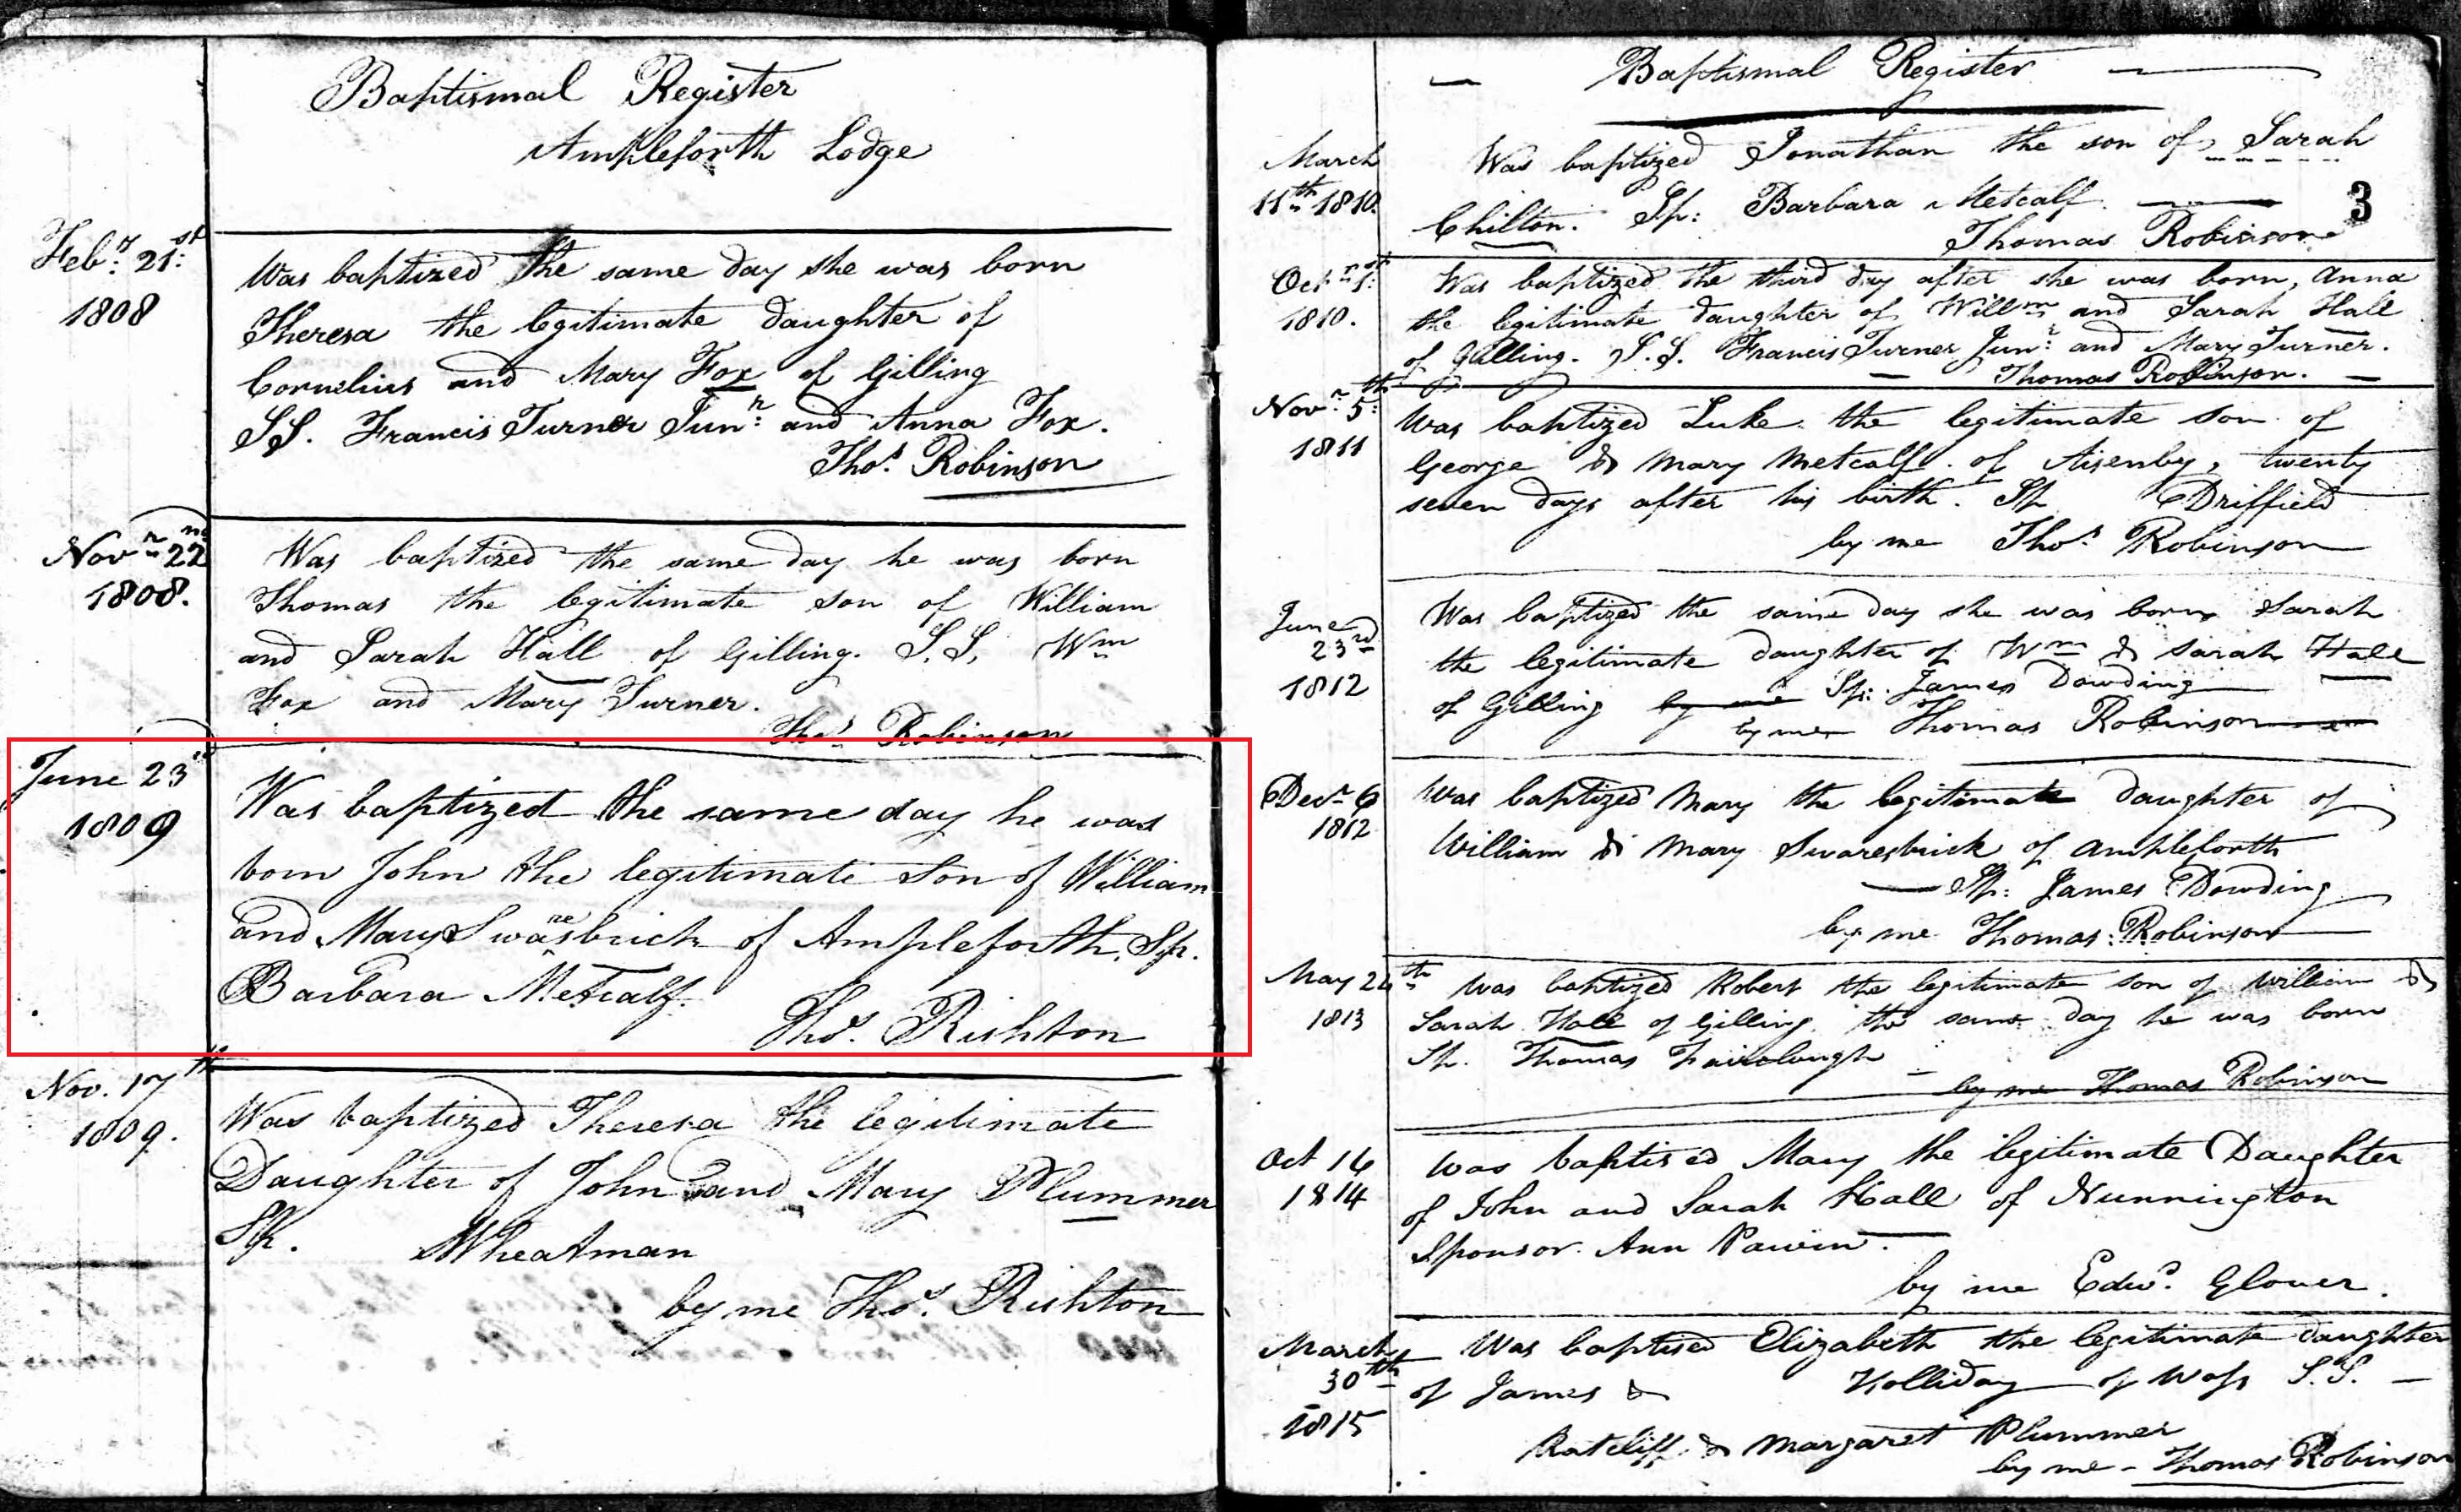 Baptismal Register
Ampleforth Lodge
Feb.y 21st
1808
Was baptized the same day she was born
Theresa the legitimate daughter of
Cornelius and Mary Fox of Gilling
SS. Francis Turner Junr: and Anna Fox.
Thos. Robinson
Novr 22nd
1808.
Was baptized the same day he was born
Thomas the legitimate son of William
and Sarah Hall of Gilling. S.S. Wm
Fox and Mary Turner.
Thos. Robinson
June 23rd
1809
Was baptized the same day he was
born John the legitimate son of William
and Mary Swaresbrick of Ampleforth. Sp.
Barbara Metcalf.
Thos. Rishton
Nov. 17th
1809.
Was baptized Theresa the legitimate
Daughter of John and Mary Plummer
Sp. Wheatman
by me Thos. Rishton
Baptismal Register
3
March
11th 1810.
Was baptized Jonathan the son of Sarah
Chilton. Sp: Barbara Metcalf.
Thomas Robinson
Octr 1st:
1810.
Was baptized the third day after she was born, Anna
the legitimate daughter of Willm and Sarah Hall
of Gilling. S.S. Francis Turner Junr: and Mary Turner.
Thomas Robinson.
Novr 5th:
1811
Was baptized Luke the legitimate son of
George & Mary Metcalf of Aisenby, twenty
seven days after his birth. Sp Driffield
by me Thos. Robinson
June
23rd
1812
Was baptized the same day she was born Sarah
the legitimate daughter of Wm & Sarah Hall
of Gilling by me Sp: James Dowding
by me Thomas Robinson
Decr 6
1812
Was baptized Mary the legitimate daughter of
William & Mary Swaresbrick of Ampleforth
Sp: James Dowding
by me Thomas Robinson
May 24th
1813
Was baptized Robert the legitimate son of William &
Sarah Hall of Gilling the same day he was born
Sp. Thomas Fairclough
by me Thomas Robinson
Oct 14
1814
Was baptised Mary the legitimate Daughter
of John and Sarah Hall of Nunnington
Sponsor. Ann
by me Edwd. Glover.
March
30th
1815
Was baptised Elizabeth the legitimate daughter
of James & Holliday of Wass S.S.
Ratcliff & Margaret Plummer
by me - Thomas Robinson